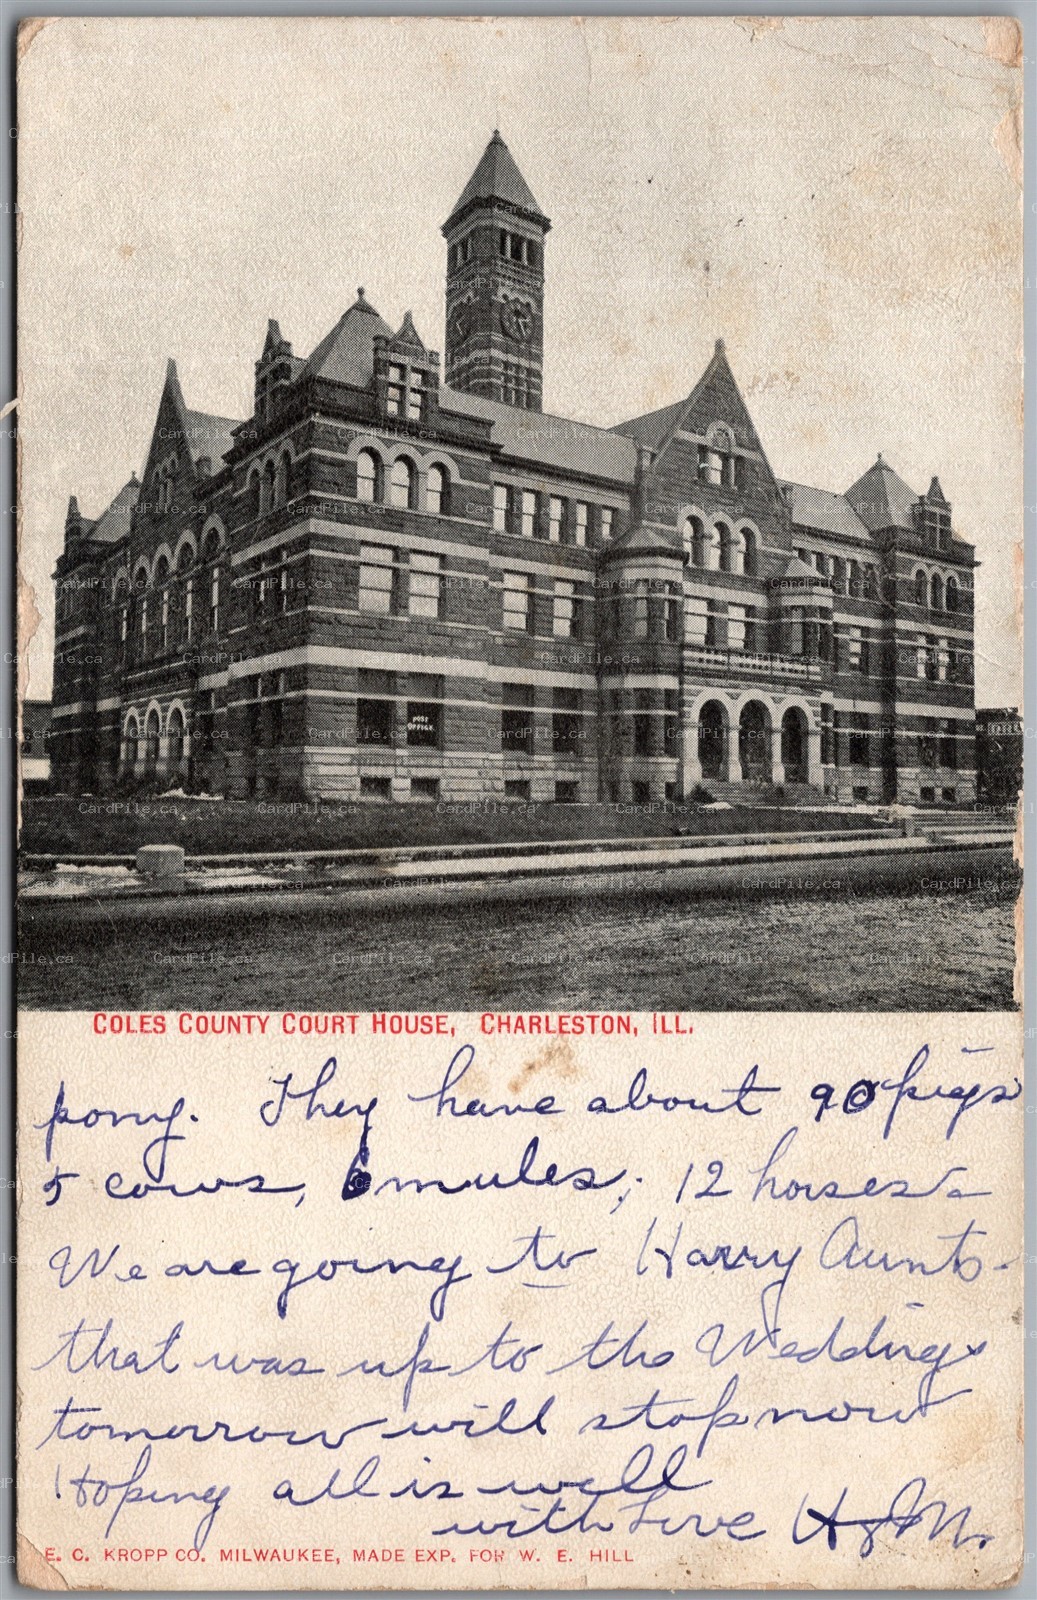 POST
OFFICE
COLES COUNTY COURT HOUSE, CHARLESTON, ILL.
pony. They have about 90 pigs
5 cows, 6 mules, 12 horses.
We are going to Harry Aunts.
that was up to the Wedding
tomorrow will stop now
Hoping all is well
with Love H & M.
E. C. KROPP CO. MILWAUKEE, MADE EXP. FOR W. E. HILL
CardPile.ca